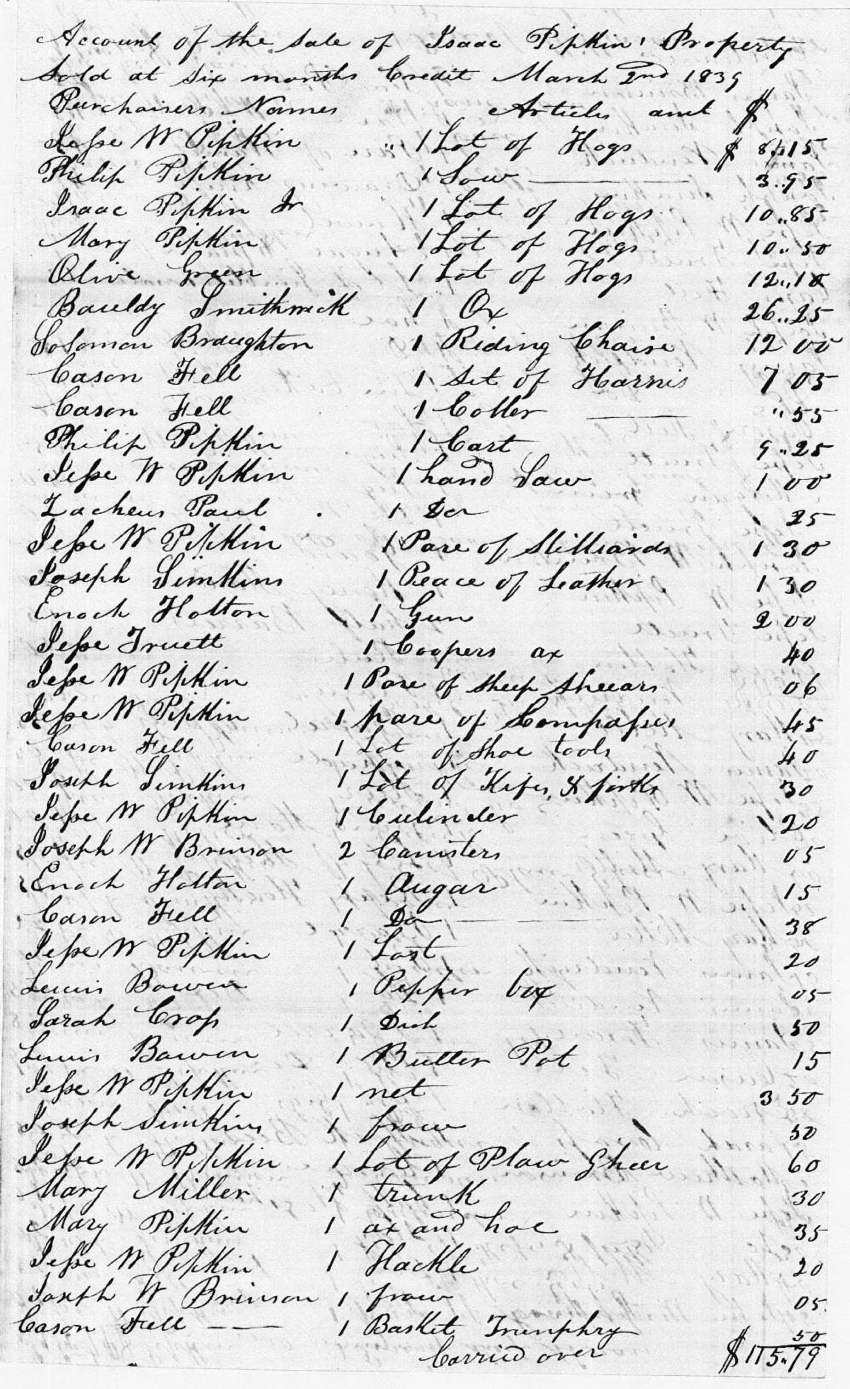 Account of the sale of Isaac Pipkin' Property
Sold at six months Credit March 2nd 1839
Purchaisers Names Articles amt $
Jesse W Pipkin " 1 Lot of Hogs $ 8,,15
Philip Pipkin 1 Sow — 3,,95
Isaac Pipkin Jr 1 Lot of Hogs 10,,85
Mary Pipkin 1 Lot of Hogs 10,,50
Olive Green 1 Lot of Hogs 12,,10
Bauldy Smithwick 1 Ox 26,,25
Solomon Braughton 1 Riding Chaise 12 00
Cason Fell 1 Set of Harnis 7 05
Cason Fell 1 Coller — "55
Philip Pipkin 1 Cart 9,,25
Jesse W Pipkin 1 hand Saw 1 00
Zacheus Paul 1 Do 25
Jesse W Pipkin 1 Pare of Stilliards 1 30
Joseph Simkins 1 Peace of Leather 1 30
Enoch Holton 1 Gun 2 00
Jesse Truett 1 Coopers ax 40
Jesse W Pipkin 1 Pare of Sheep Sheears 06
Jesse W Pipkin 1 pare of Compasses 45
Cason Fell 1 Lot of Shoe tools 40
Joseph Simkins 1 Lot of Kifes & forks 30
Jesse W Pipkin 1 Culinder 20
Joseph W Brinson 2 Canisters 05
Enoch Holton 1 Augar 15
Cason Fell 1 Do — 38
Jesse W Pipkin 1 Last 20
Lewis Bowen 1 Pepper box 05
Sarah Crop 1 Dish 50
Lewis Bowen 1 Butter Pot 15
Jesse W Pipkin 1 net 3 50
Joseph Simkins 1 frow 50
Jesse W Pipkin 1 Lot of Plaw Gheer 60
Mary Miller 1 trunk 30
Mary Pipkin 1 ax and hoe 35
Jesse W Pipkin 1 Hackle 20
Joseph W Brinson 1 frow 05
Cason Fell — 1 Basket Trumphry 50
Carried over $115,,79